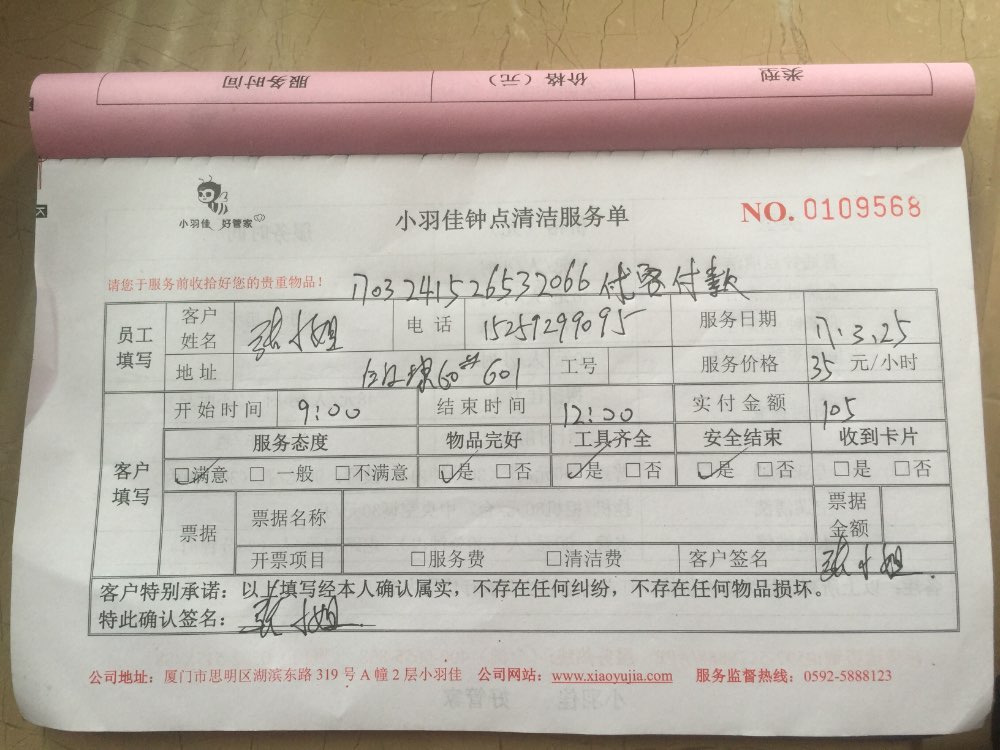 服务时间 价格（元） 类型
小羽佳 好管家
小羽佳钟点清洁服务单
NO. 0109568
请您于服务前收拾好您的贵重物品！
1703241526532066代客付款
员工填写 客户姓名 张小姐 电话 15259299095 服务日期 17.3.25
地址 60# 601 工号 服务价格 35 元/小时
客户填写 开始时间 9:00 结束时间 12:00 实付金额 105
服务态度 物品完好 工具齐全 安全结束 收到卡片
☑满意 □ 一般 □不满意 ☑是 □否 ☑是 □否 ☑是 □否 □是 □否
票据 票据名称 票据金额
开票项目 □服务费 □清洁费 客户签名 张小姐
客户特别承诺：以上填写经本人确认属实，不存在任何纠纷，不存在任何物品损坏。
特此确认签名：张小姐
公司地址：厦门市思明区湖滨东路 319 号 A 幢 2 层小羽佳 公司网站：www.xiaoyujia.com 服务监督热线：0592-5888123